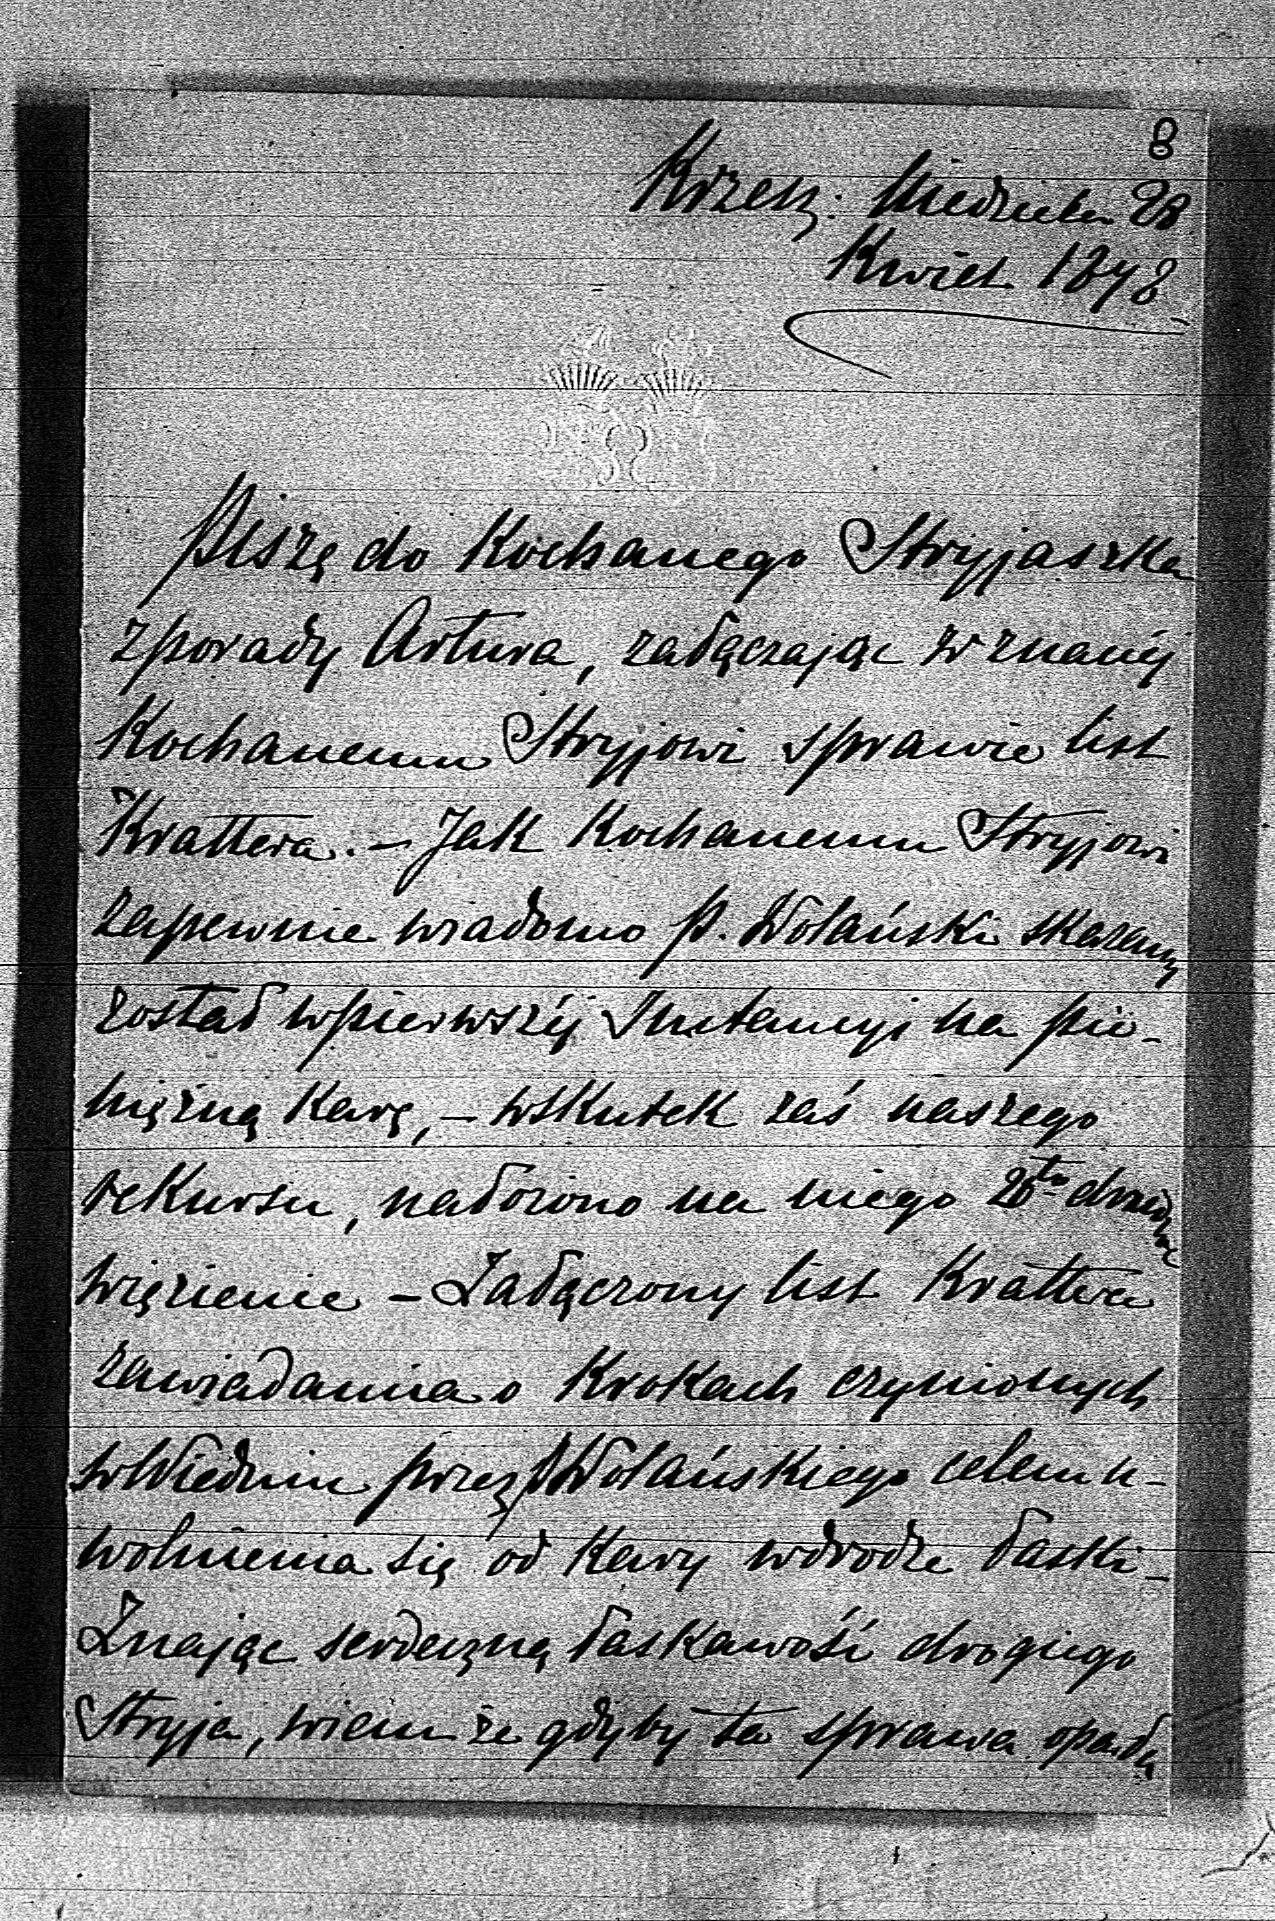 8
Krzesz: Niedziela 28
Kwiet 1878
Piszę do Kochanego Stryjaszka
z porady Artura, załączając w znanéj
Kochanemu Stryjowi sprawie list
Krattera. – Jak Kochanemu Stryjowi
zapewnie wiadomo p. Wolański skazany
został w pierwszéj Instancyi na pie-
niężną karę, – wskutek zaś naszego
rekursu, nałożono na niego 20to dniowe
więzienie – Załączony list Krattera
zawiadamia o krokach czynionych
w Wiedniu przez Wolańskiego celem u-
wolnienia się od kary w drodze łaski –
Znając serdeczną łaskawość drogiego
Stryja, wiem że gdyby ta sprawa